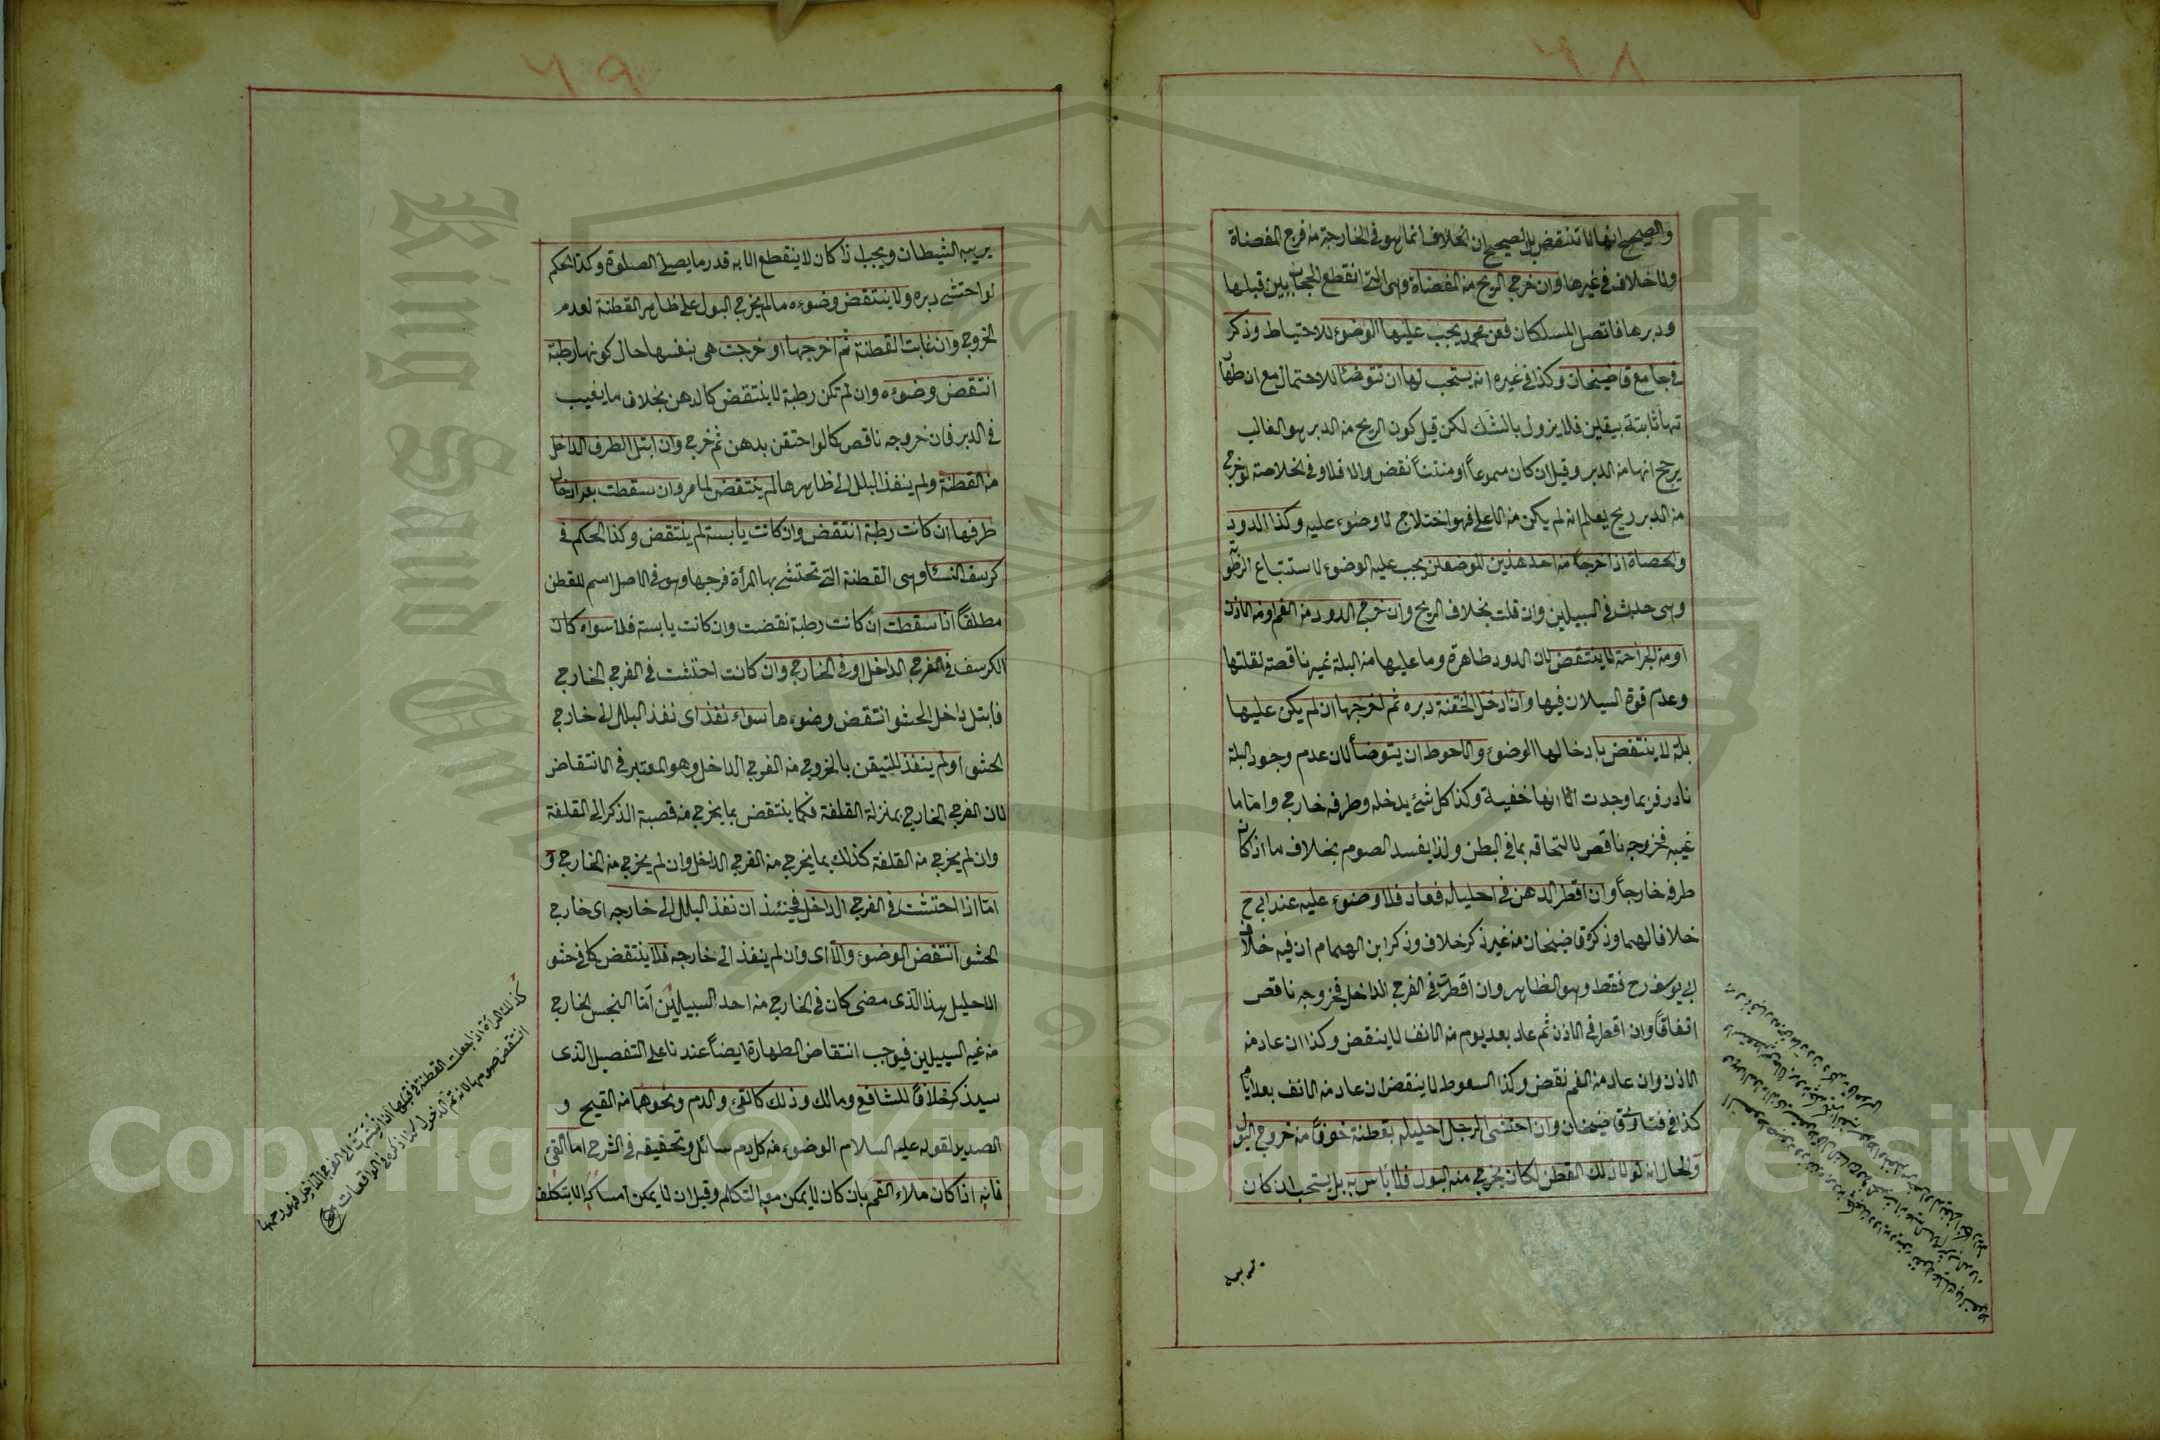 ٦٨
والصحيح انها لا تنقض بل الصحيح ان الخلاف انما هو في الخارجة من فرج المفضاة
ولا خلاف في غيرها وان خرج الريح من المفضاة وهى التى انقطع الحجاب بين قبلها
ودبرها فاتصل المسلكان فعن محمد يجب عليها الوضوء للاحتياط وذكر
في جامع قاضيخان وكذا في غيره انه يستحب لها ان تتوضأ للاحتمال مع ان طهار
تها ثابتة بيقين فلا يزول بالشك لكن قيل كون الريح من الدبر هو الغالب
يرجح انها من الدبر وقيل ان كان مسموعاً او منتناً نقض والا فلا وفي الخلاصة لو خرج
من الدبر ريح يعلم انه لم يكن من الاعلى فهو اختلاج لا وضوء عليه وكذا الدود
والحصاة اذا خرجا من احد هذين الموضعين يجب عليه الوضوء لاستتباع الرطوبة
وهى حدث في السبيلين وان قلت بخلاف الريح وان خرج الدود من الفم او من الاذن
او من الجراحة لا ينتقض لان الدود طاهرة وما عليها من البلة غير ناقصة لقلتها
وعدم قوة السيلان فيها وان ادخل الحقنة دبره ثم اخرجها ان لم يكن عليها
بلة لا ينتقض بادخالها الوضوء والاحوط ان يتوضأ لان عدم وجود البلة
نادر فربما وجدت الا انها خفية وكذا كل شئ يدخله وطرفه خارج واما ما
غيبه فخروجه ناقص لالتحاقه بما في البطن ولذا يفسد الصوم بخلاف ما اذا كان
طرفه خارجاً وان اقطر الدهن في احليله فعاد فلا وضوء عليه عند ابي ح
خلافا لهما وذكره قاضيخان من غير ذكر خلاف وذكر ابن الهمام ان فيه خلاف
ابي يوسف رح فقط وهو الظاهر وان اقطرته في الفرج الداخل فخروجه ناقص
اتفاقاً وان اقطر في الاذن ثم عاد بعد يوم من الانف لا ينتقض وكذا ان عاد من
الاذن وان عاد من الفم نقض وكذا السعوط لا ينقض ان عاد من الانف بعد ايام
كذا في فتاوى قاضيخان وان احتشى الرجل احليله بقطنة خوفاً من خروج البول
والحال انه لولا ذلك القطن لكان يخرج منه البول فلا بأس به بل يستحب ان كان
يريبه
٦٩
يريبه الشيطان ويجب اذا كان لا ينقطع الا به قدر ما يصلي الصلوة وكذا الحكم
لو احتشى دبره ولا ينتقض وضوءه ما لم يخرج البول على ظاهر القطنة لعدم
الخروج وان غابت القطنة ثم اخرجها او خرجت هى بنفسها حال كونها رطبة
انتقض وضوءه وان لم تكن رطبة لا ينتقض كالدهن بخلاف ما يغيب
في الدبر فان خروجه ناقص كما لو احتقن بدهن ثم خرج وان ابتل الطرف الداخل
من القطنة ولم ينفذ البلل الى ظاهرها لم ينتقض لما مر وان سقطت بعد ابتلال
طرفها ان كانت رطبة انتقض وان كانت يابسة لم ينتقض وكذا الحكم في
كرسف النساء وهى القطنة التى تحتشى بها المرأة فرجها وهو في الاصل اسم للقطن
مطلقاً اذا سقطت ان كانت رطبة نقضت وان كانت يابسة فلا سواء كان
الكرسف في الفرج الداخل او في الخارج وان كانت احتشت في الفرج الخارج
فابتل داخل الحشو انتقض وضوءها سواء نفذ اى نفذ البلل الى خارج
الحشو او لم ينفذ للتيقن بالخروج من الفرج الداخل وهو المعتبر في الانتقاض
لان الفرج الخارج بمنزلة القلفة فكما ينتقض بما يخرج من قصبة الذكر الى القلفة
وان لم يخرج من القلفة كذلك بما يخرج من الفرج الداخل وان لم يخرج من الخارج و
اما اذا احتشت في الفرج الداخل فحينئذ ان نفذ البلل الى خارجه اى خارج
الحشو انتقض الوضوء والا اى وان لم ينفذ الى خارجه فلا ينتقض كما في حشو
الاحليل هذا الذى مضى كان في الخارج من احد السبيلين اما النجس الخارج
من غير السبيلين فيوجب انتقاض الطهارة ايضاً عندنا على التفصيل الذى
سيذكر خلافاً للشافعى ومالك وذلك كالقئ والدم ونحوهما من القيح و
الصديد لقوله عليه السلام الوضوء من كل دم سائل وتحقيقه في الشرح اما القئ
فانه اذا كان ملاء الفم بان كان لا يمكن معه التكلم وقيل ان لا يمكن امساكه الا بتكلف
كذلك المرأة اذا جعلت القطنة في قبلها ان انتهت الى الفرج الداخل فهو رحمها
انتقض صومها لانه تم الدخول كذا ذكره في الواقعات